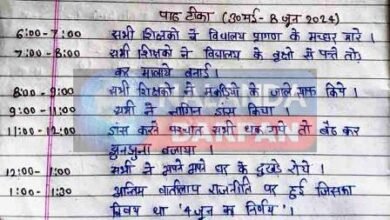 पाठ टीका (30 मई - 8 जून 2024)
6:00-7:00 सभी शिक्षकों ने विद्यालय प्रांगण के मच्छर मारे।
7:00-8:00 सभी शिक्षकों ने विद्यालय के वृक्षों से पत्ते तोड़
कर मालाये बनाई।
8:00-9:00 सभी शिक्षकों ने मकड़ियो के जाले एकत्र किये।
9:00-11:00 सभी ने नागिन डांस किया।
11:00-12:00 डांस करने पश्चात सभी थक गये तो बैठ कर
झुनझुना बजाया।
12:00-1:00 सभी ने अपने अपने घर के दुखड़े रोये।
1:00-1:30 अन्तिम वार्तालाप राजनीति पर हुई जिसका
विषय था '4 जून का निर्णय'।
DARPAN